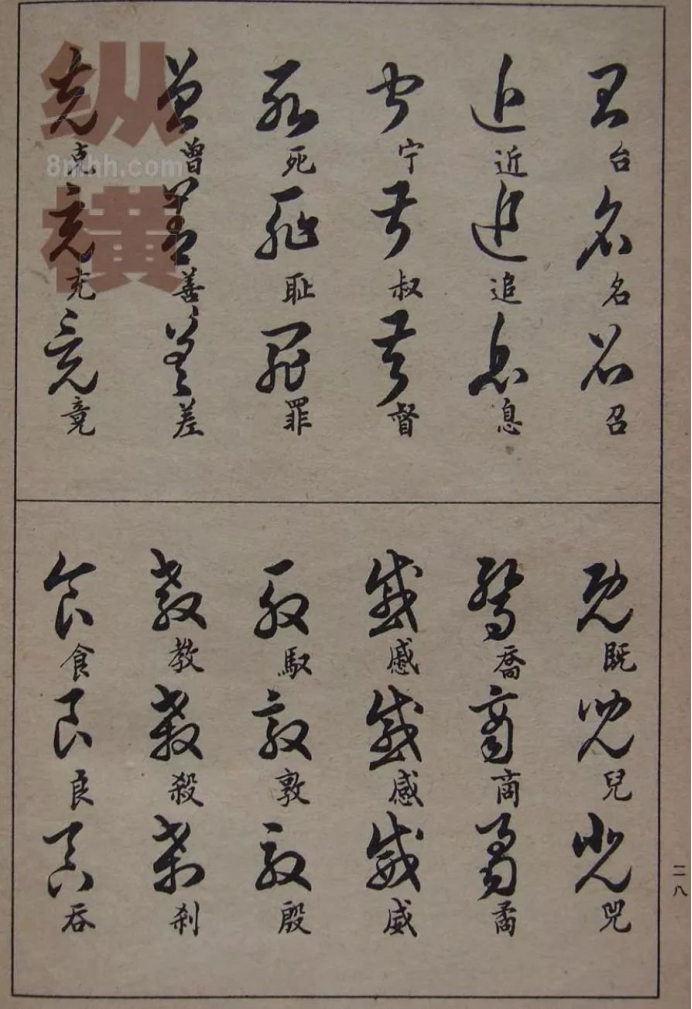 台 名 召
近 追 息
宁 叔 督
死 耻 罪
曾 善 差
克 充 竟
既 兒 兕
喬 商 矞
慼 感 威
馭 敦 殷
教 殺 刹
食 良 吞
二八
纵横
8mhh.com